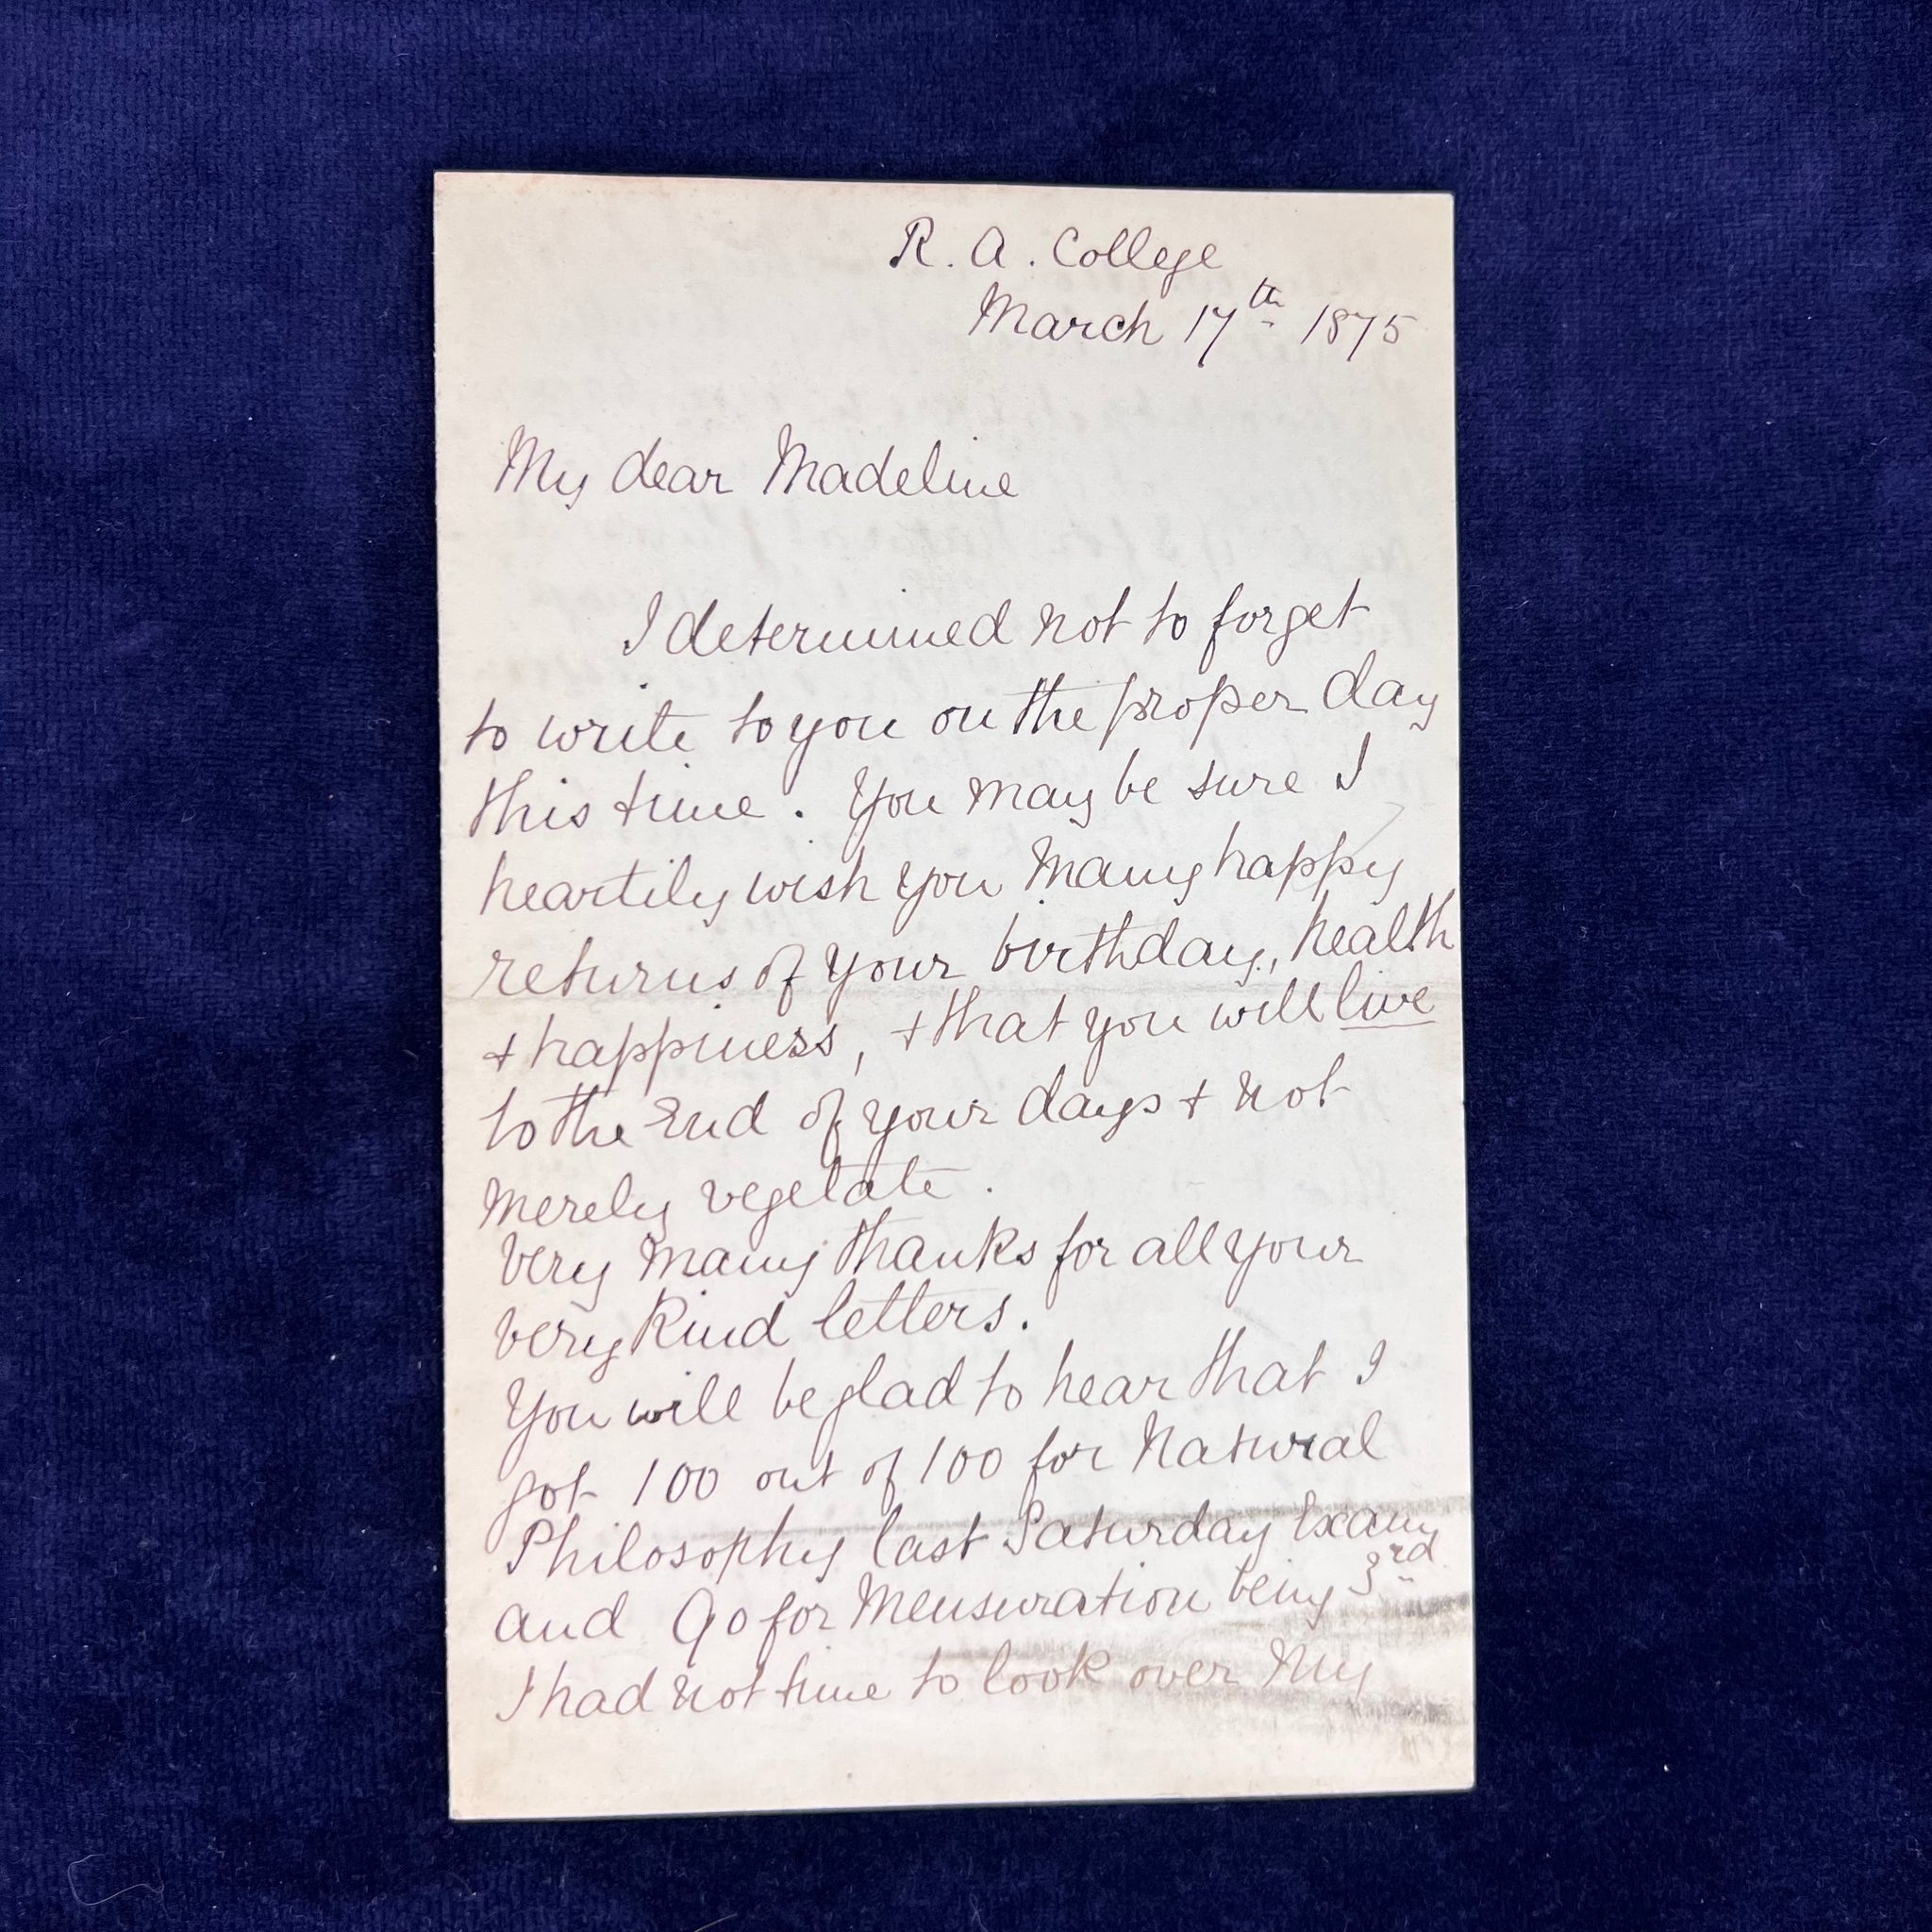 R. A. College
March 17th 1875
My dear Madeline
I determined not to forget
to write to you on the proper day
this time. You may be sure I
heartily wish you many happy
returns of your birthday, health
+ happiness, + that you will live
to the end of your days + not
merely vegetate.
Very many thanks for all your
very kind letters.
You will be glad to hear that I
got 100 out of 100 for Natural
Philosophy last Saturday Exam
and 90 for Mensuration being 3rd
I had not time to look over my